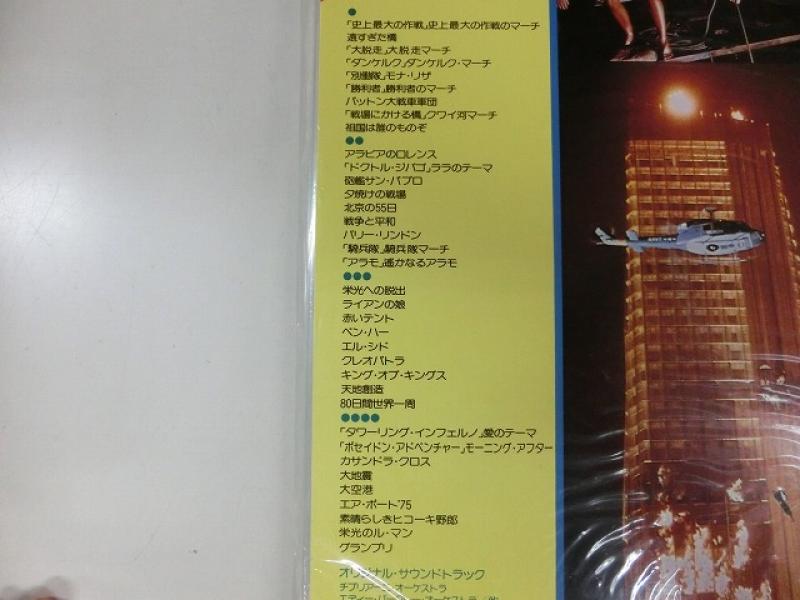 ●
「史上最大の作戦」史上最大の作戦のマーチ
遠すぎた橋
「大脱走」大脱走マーチ
「ダンケルク」ダンケルク・マーチ
「別働隊」モナ・リザ
「勝利者」勝利者のマーチ
パットン大戦車軍団
「戦場にかける橋」クワイ河マーチ
祖国は誰のものぞ
●●
アラビアのロレンス
「ドクトル・ジバゴ」ララのテーマ
砲艦サン・パブロ
夕焼けの戦場
北京の55日
戦争と平和
バリー・リンドン
「騎兵隊」騎兵隊マーチ
「アラモ」遙かなるアラモ
●●●
栄光への脱出
ライアンの娘
赤いテント
ベン・ハー
エル・シド
クレオパトラ
キング・オブ・キングス
天地創造
80日間世界一周
●●●●
「タワーリング・インフェルノ」愛のテーマ
「ポセイドン・アドベンチャー」モーニング・アフター
カサンドラ・クロス
大地震
大空港
エア・ポート'75
素晴らしきヒコーキ野郎
栄光のル・マン
グランプリ
オリジナル・サウンドトラック
オーケストラ